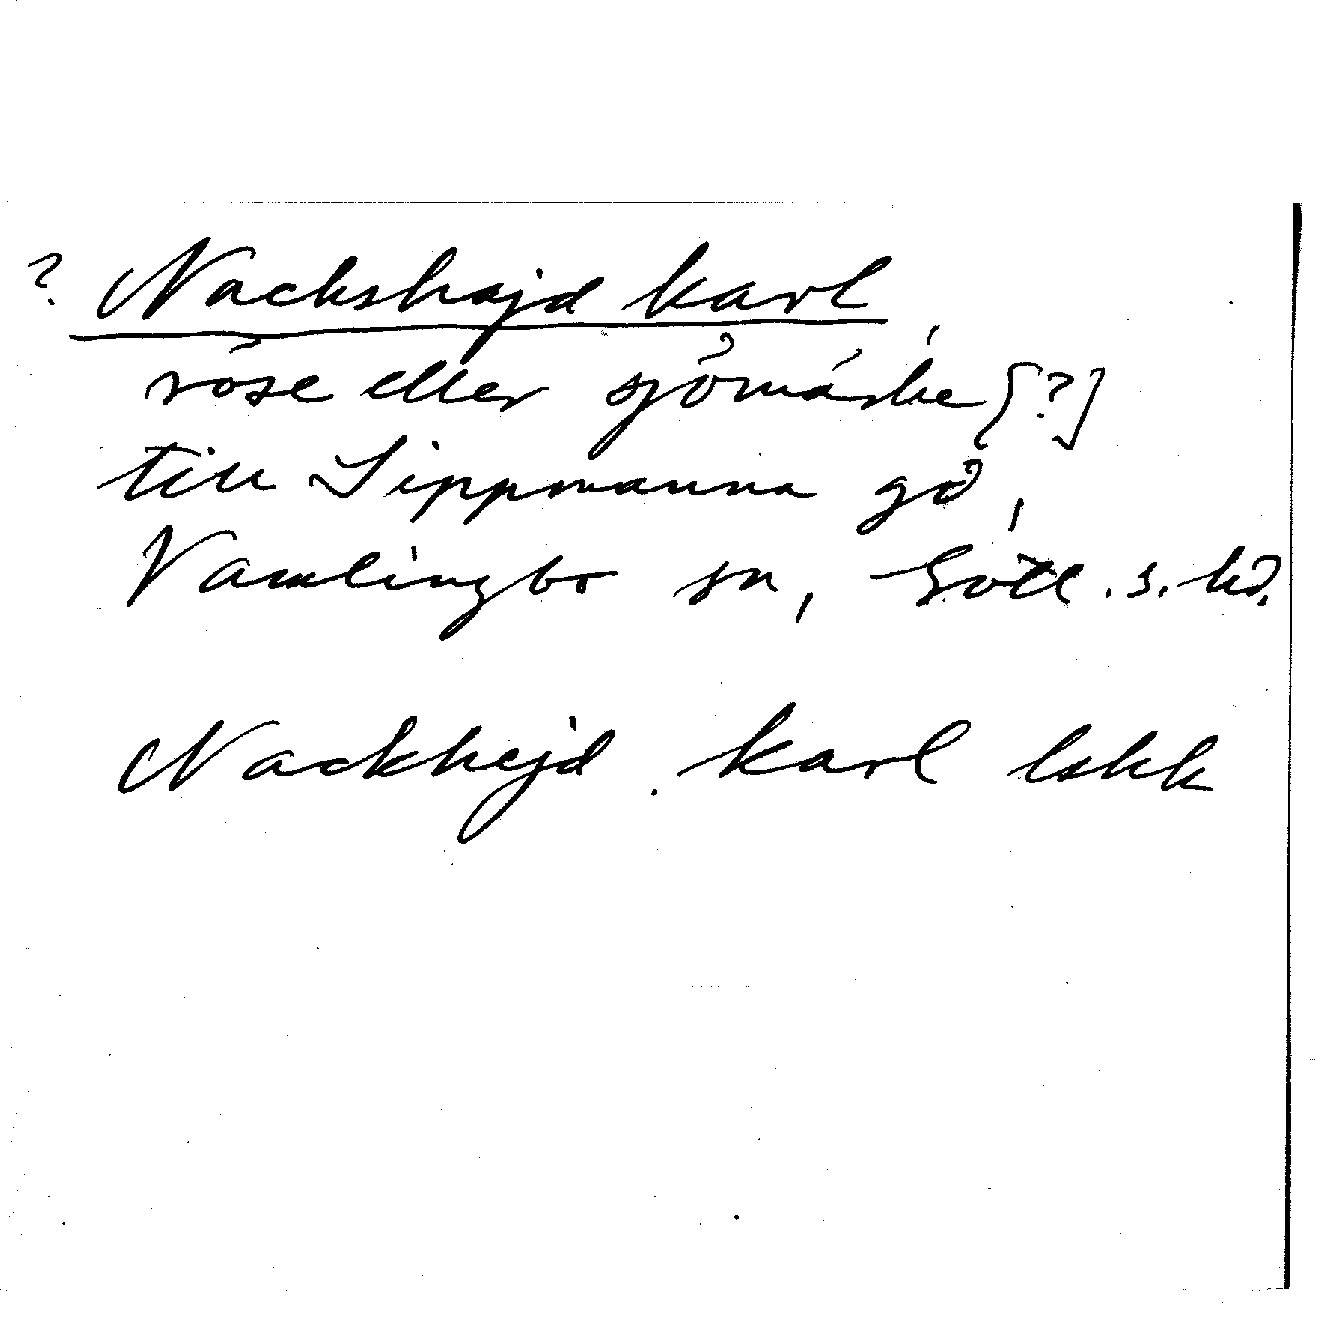 ? Nackshajd karl
röse eller sjömärke [?]
till Sippmanna gd,
Vamlingbo sn, Gotl. s. hd.
Nackhejd karl lskk